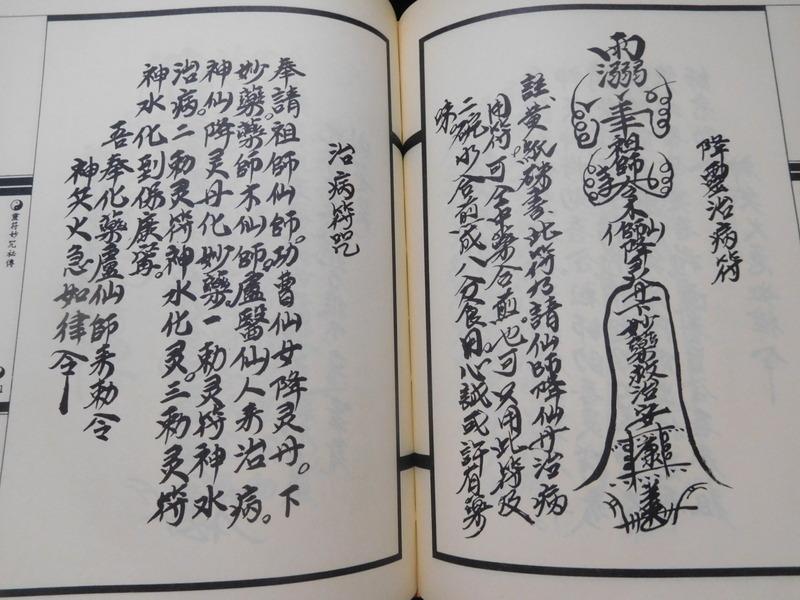 降靈治病符
祖師
仙師降灵丹下妙藥救治安康
註、黃紙硃書、此符乃請仙師降仙丹治病
用符。可合中藥合煎。也可以用此符及
二碗水合煎成八分食用。心誠或許有藥
味。
治病符咒
奉請祖師仙師。功曹仙女降灵丹。下
妙藥。藥師木仙師。盧醫仙人來治病。
神仙降灵丹化妙藥。一勅灵符神水
治病。二勅灵符神水化灵。三勅灵符
神水化到保康寧。
吾奉化藥盧仙師來勅令
神炎火急如律令
靈符妙咒祕傳